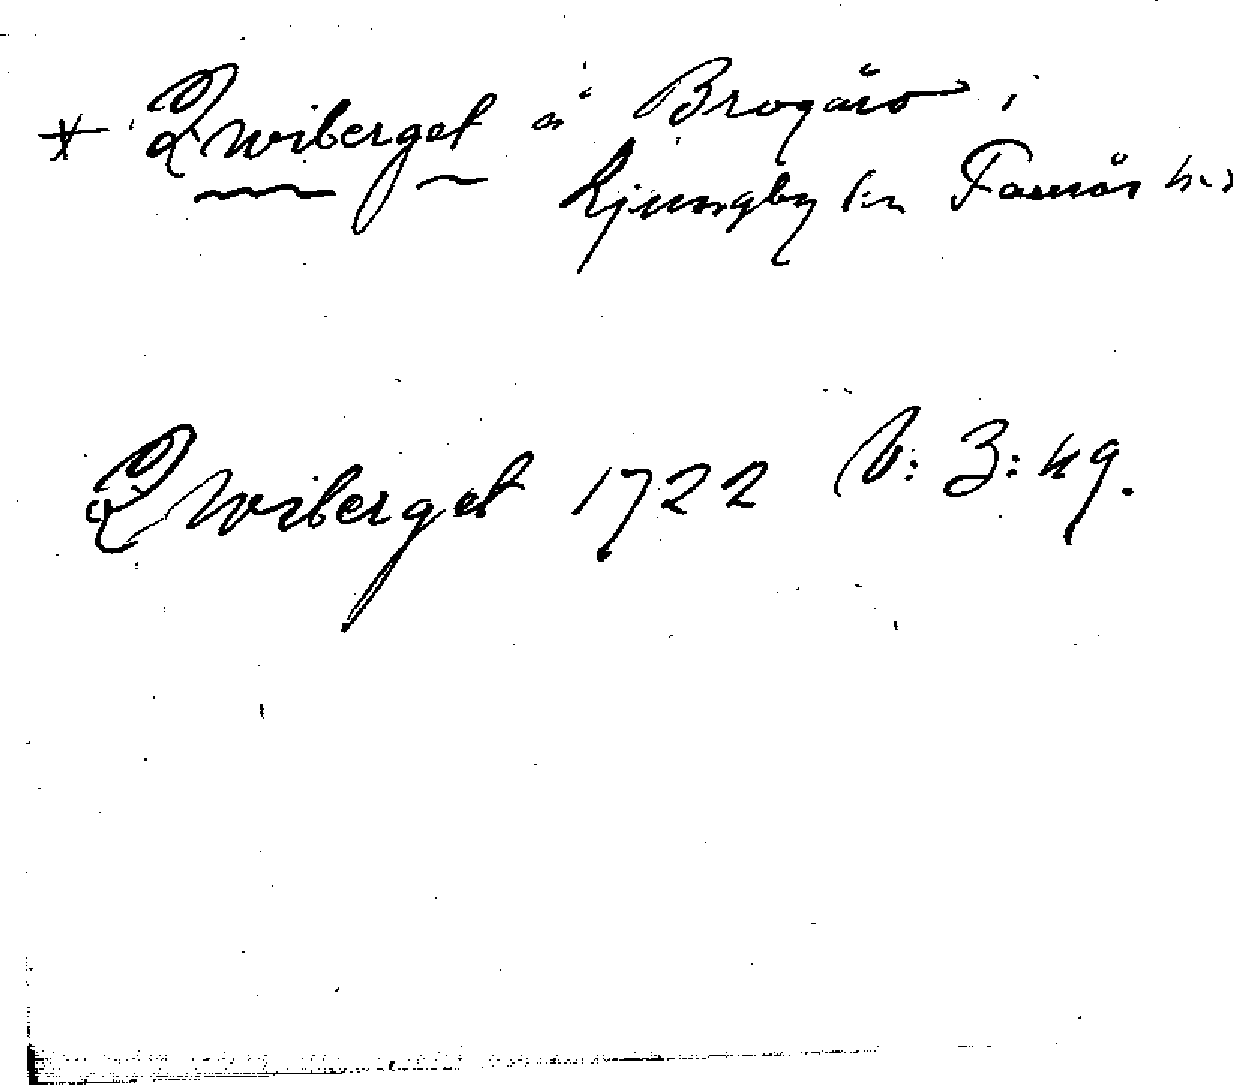 * Qwiberget å Brogård i
Ljungby sn Faurås hd
Qwiberget 1722 N: 3: 49.